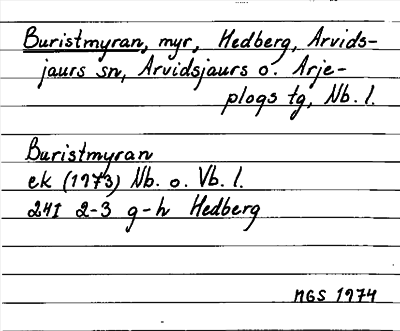 Buristmyran, myr, Hedberg, Arvids-
jaurs sn, Arvidsjaurs o. Arje-
plogs tg, Nb. l.
Buristmyran
ek (1973) Nb. o. Vb. l.
24I 2-3 g-h Hedberg
MGS 1974